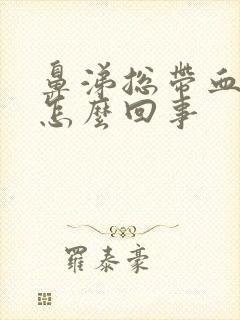 鼻涕总帶血
怎麼回事
羅泰豪